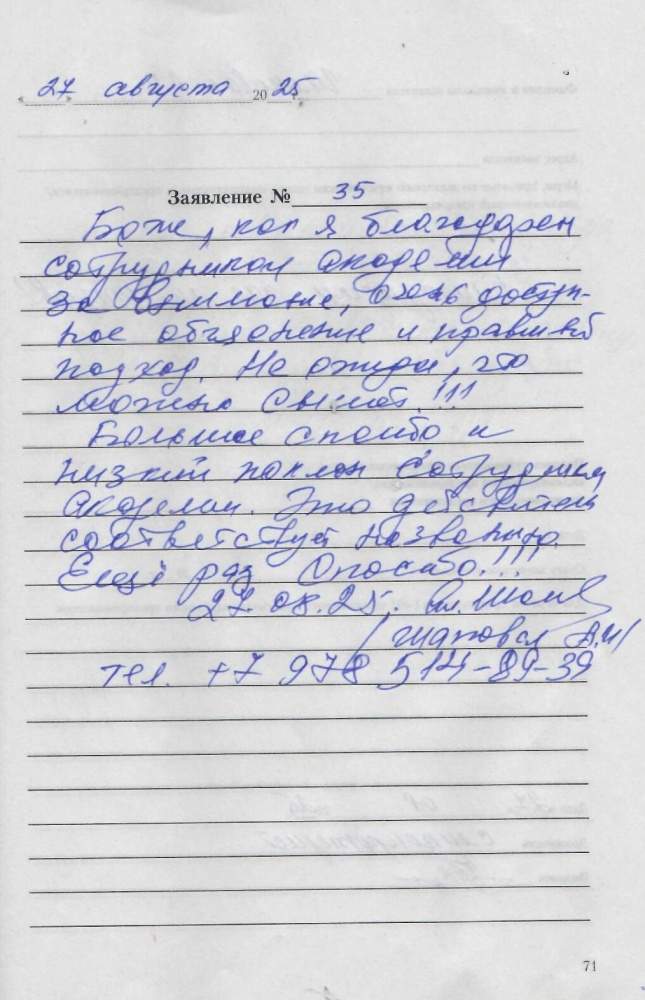 27 августа 2025
Заявление № 35
Боже, как я благодарен
сотрудникам академии
за внимание, очень доступ-
ное объяснение и правильный
подход. Не ожидал, что
можно слышать!!!
Большое спасибо и
низкий поклон сотрудникам
академии. Это действительно
соответствует названию.
Ещё раз Спасибо!!!
27.08.25.
тел. +7 978 514-89-39
71